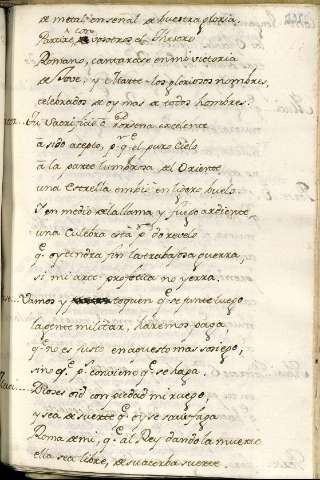 de metal en señal de buestra gloria,
Partiré con vosotros el thesoro
Romano, cantarase en mi victoria
de Jove, y Marte los gloriosos nombres,
celebrados de oy mas de todos hombres.
Tu sacrificio o Porsena excelente
a sido acepto, pr. q. el puro cielo
a la parte lumbrosa del Oriente
una Estrella embio en ligero buelo.
Y en medio de la llama y fuego ardiente
una Culebra esta pr. do revelo
q. oy tendra fin la trabajosa guerra,
si mi arte profetica no yerra.
Vamos y toquen q. se junte luego
la gente militar, haremos paga,
q. no es justo en aquesto mas sosiego,
sino q. pr. convieno q. se haga.
Dioses oid con piedad mi ruego,
y sea de suerte q. oy se satisfaga
Roma de mi, q. al Rey dando la muerte
ella sea libre, de su acerba suerte.